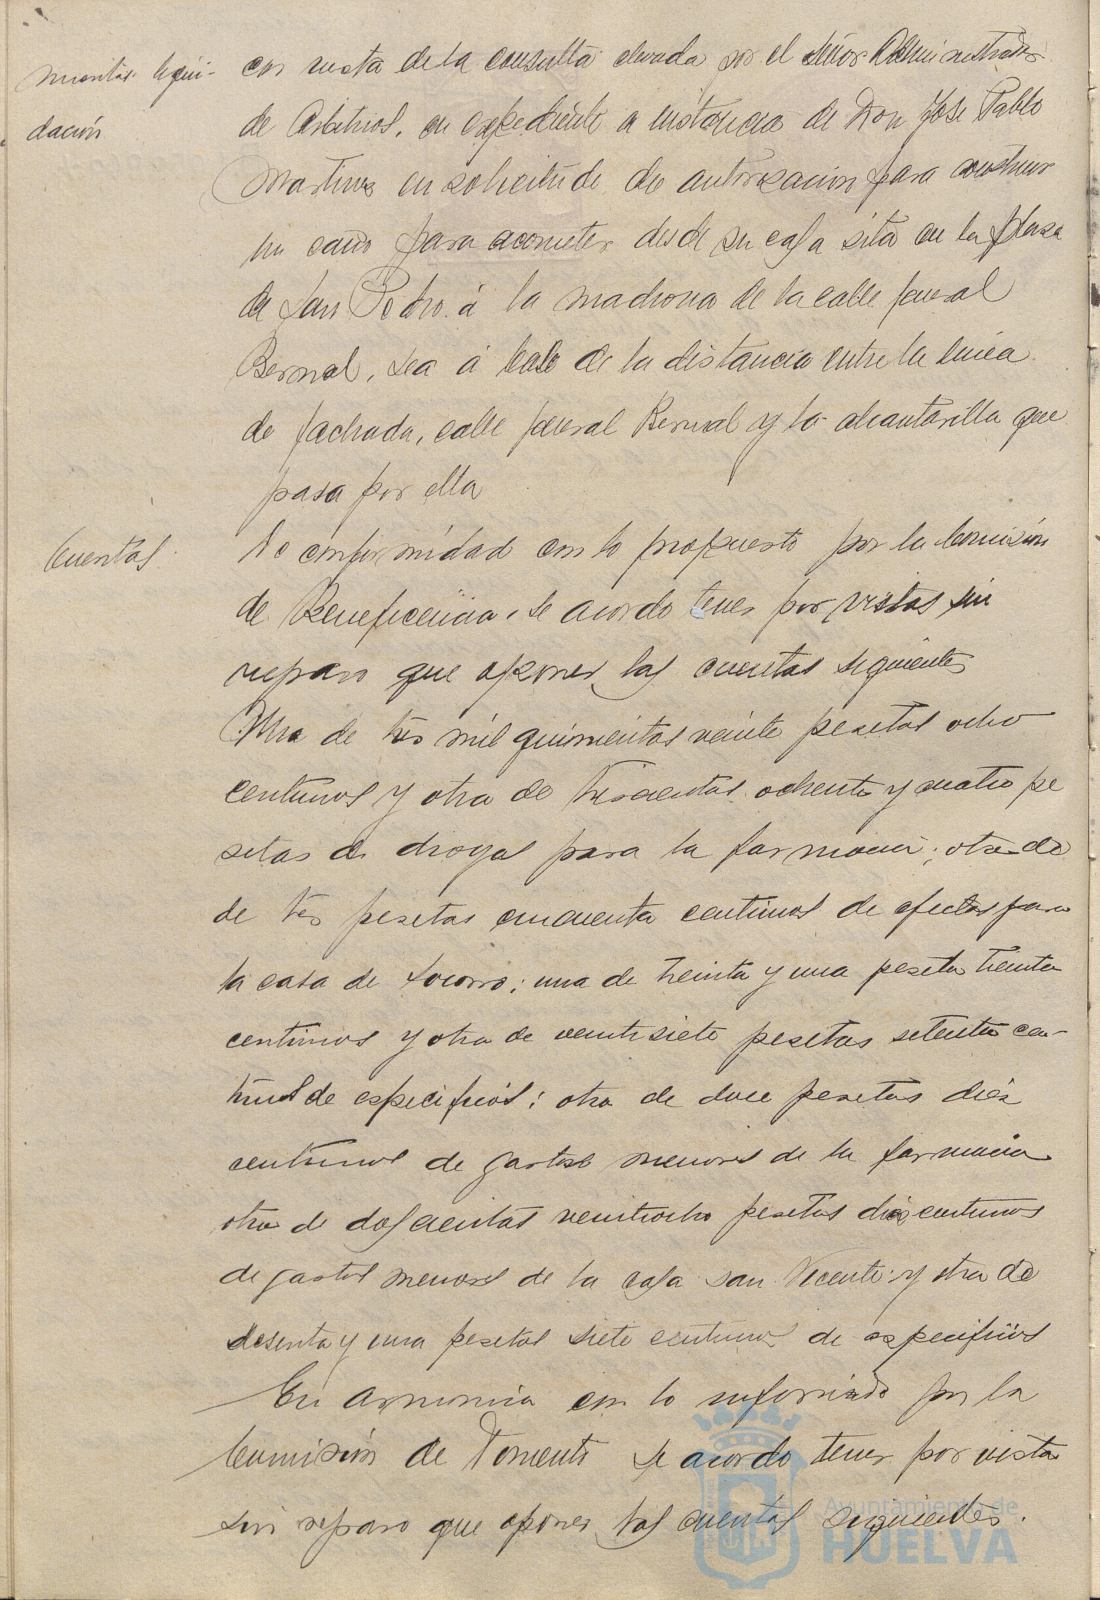 mientos liqui-
dación
con vista de la consulta elevada por el señor Administrador
de Arbitrios, en expediente a instancia de Don José Pablo
Martinez en solicitud de de autorización para construir
un caño para acometer desde su casa sita en la plaza
de San Pedro á la madrona de la calle
Bernal, sea á base de la distancia entre la linea
de fachada, calle Bernal y la alcantarilla que
pasa por ella
Cuentas.
De conformidad con lo propuesto por la Comisión
de Beneficencia, se acordo tener por vistas sin
reparo que oponer las cuentas siguientes
Una de tres mil quinientas veinte pesetas ocho
centimos y otra de trescientas ochenta y cuatro pe
setas de drogas para la farmacia; otra de
de tres pesetas cincuenta centimos de efectos para
la casa de Socorro; una de treinta y una peseta treinta
centimos y otra de veintisiete pesetas setenta cen-
timos de especificos; otra de doce pesetas diez
centimos de gastos menores de la farmacia
otra de doscientas veintiocho pesetas diez centimos
de gastos menores de la casa san Vicente y otra de
sesenta y una pesetas siete centimos de especificos
En armonia con lo informado por la
Comisión de Fomento se acordo tener por vista
sin reparo que oponer las cuentas siguientes.
Ayuntamiento de
HUELVA